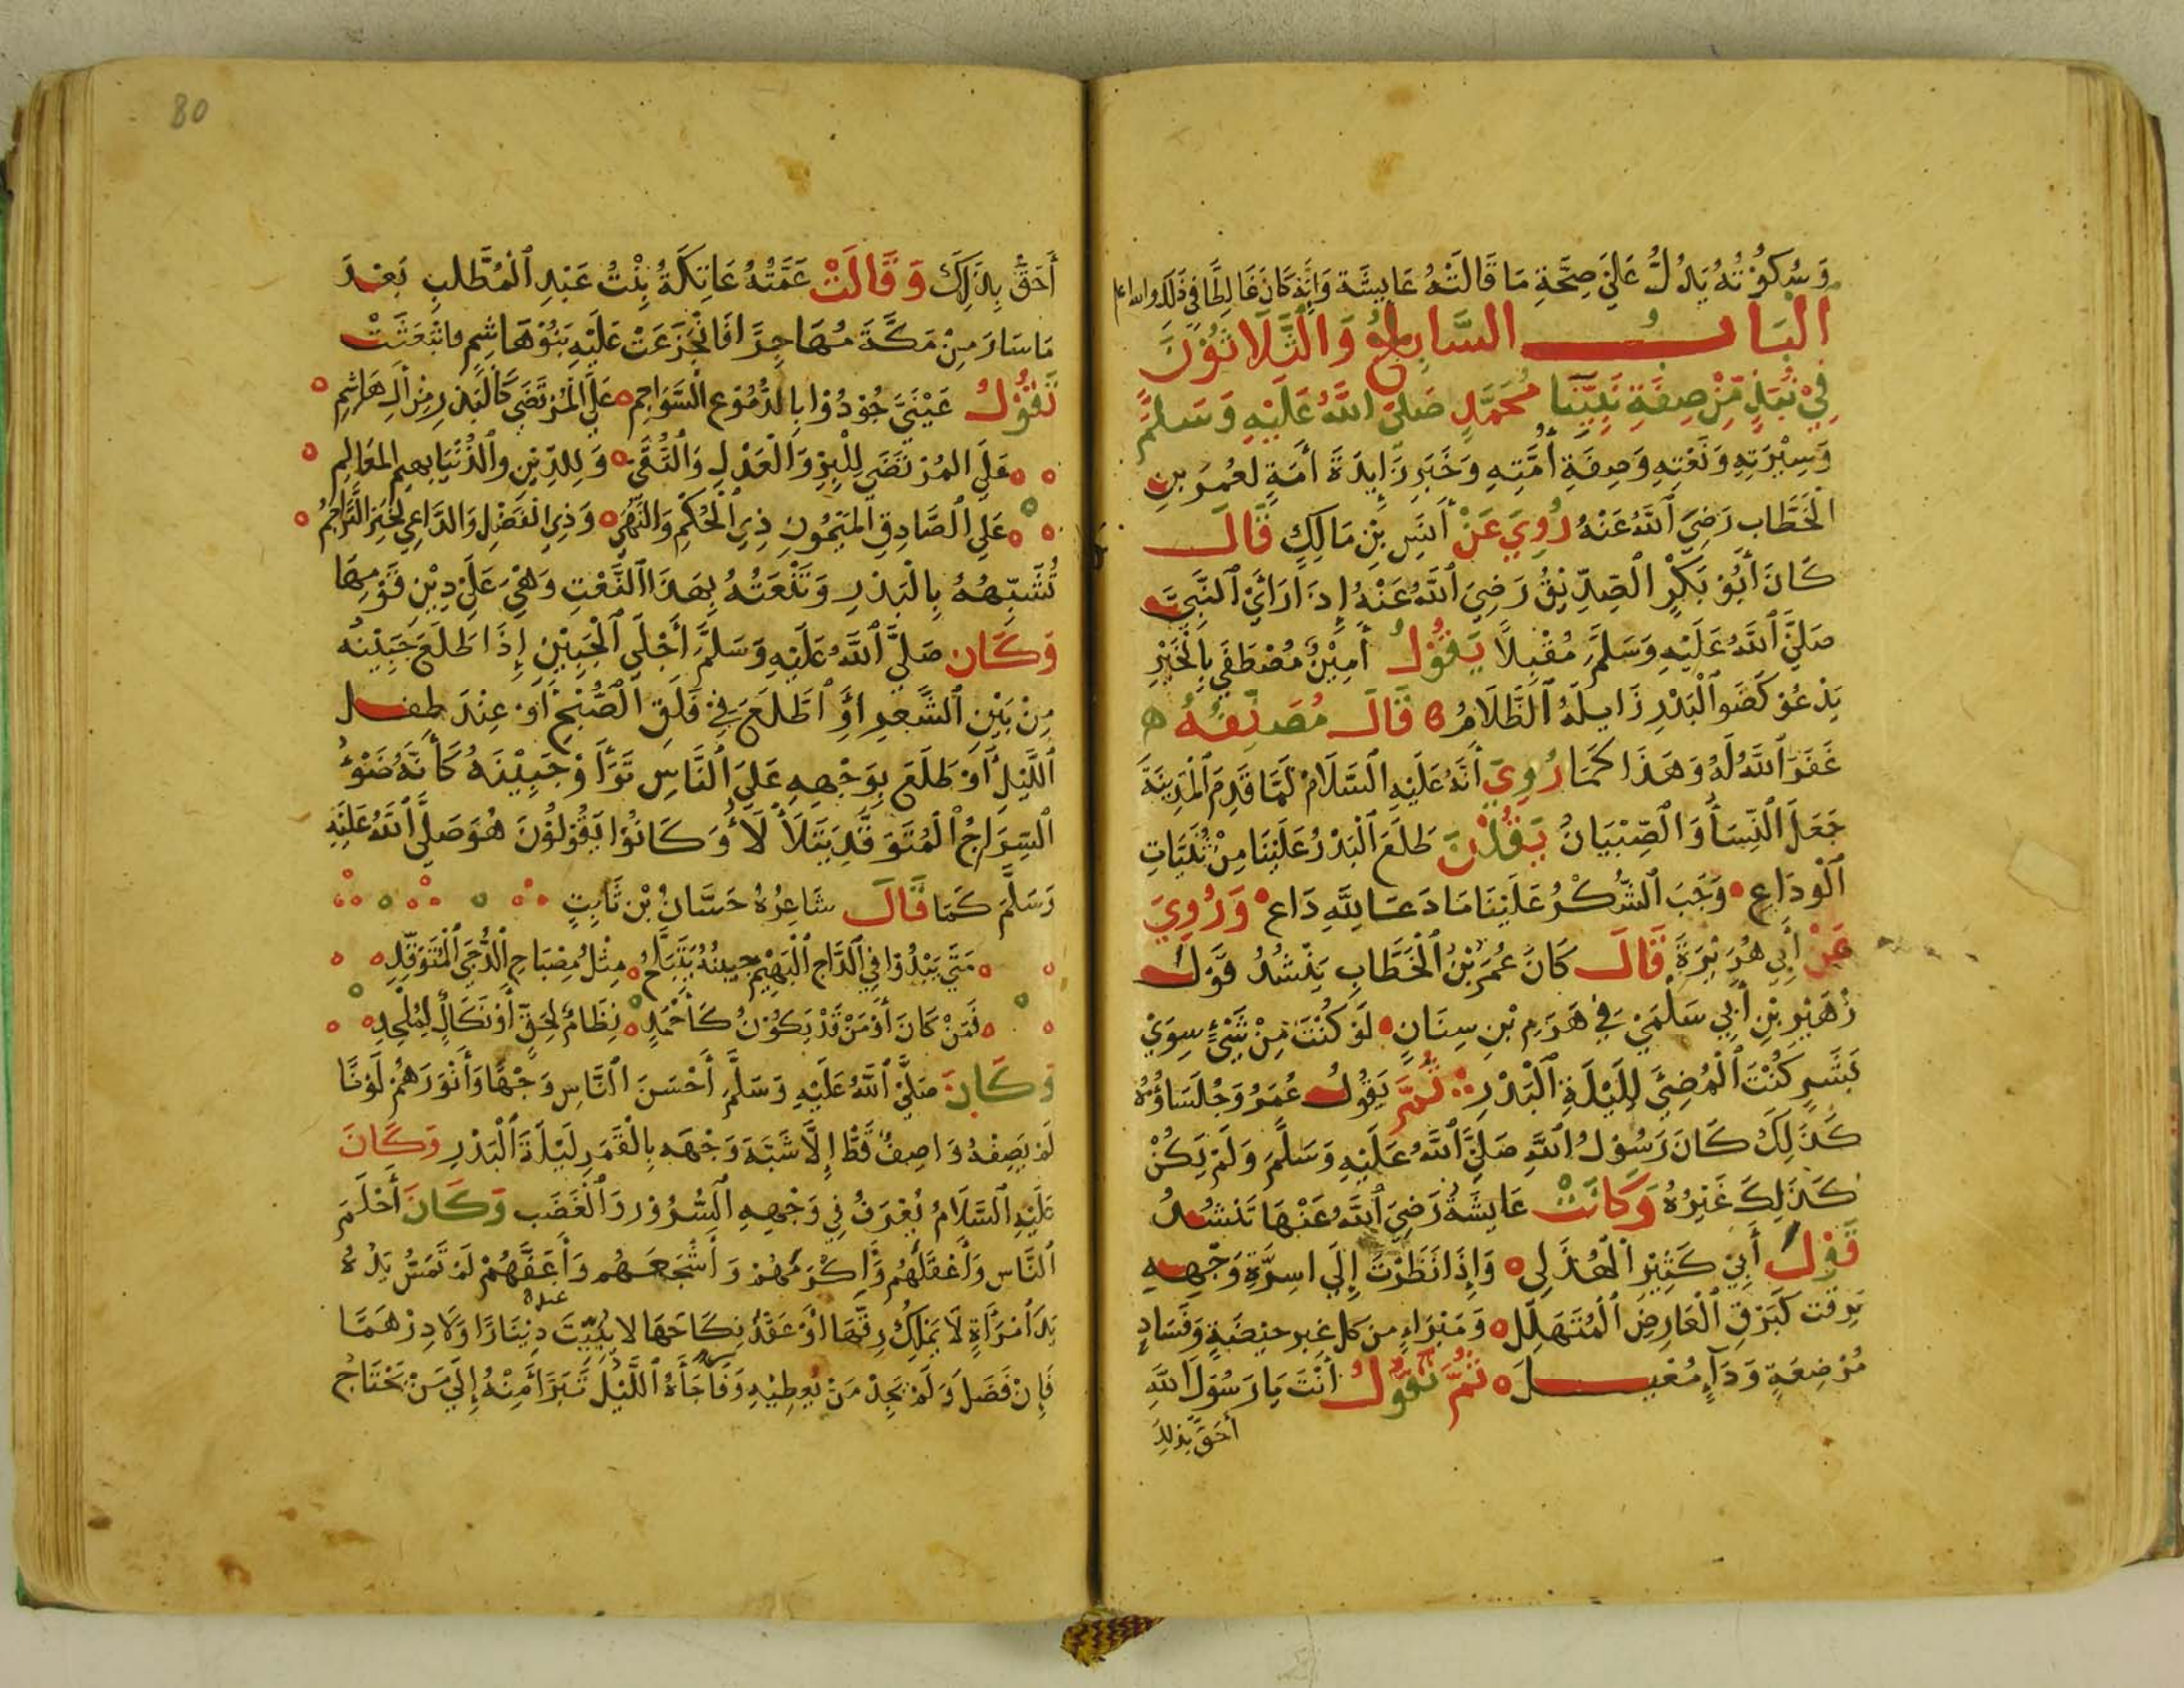 وَسُكُوْتُهُ يَدُلُّ عَلَيَ صِحَّةِ مَا قَالَتْهُ عَايِشَة وَاَنَّهُ كَانَ غَالِطًا فِي ذَلِكَ والله اعلم
البَابُ السَّابِعُ وَالثَّلَاثُوْنَ
فِيْ نُبَذٍ مِّنْ صِفَةِ نَبِيِّنَا مُحَمَّدٍ صَلَيَ اللَّهُ عَلَيْهِ وَسَلَّمَ
وَسِيْرَتِهِ وَنَعْتِهِ وَصِفَةِ أُمَّتِهِ وَخَبَرِ زَايِدَةَ أَمَةٍ لِعُمَرَ بنِ
الْخَطَّابِ رَضِيَ اللَّهُ عَنْهُ رُوِيَ عَنْ أَنَسِ بْنِ مَالِكٍ قَالَ
كَانَ أَبُوْ بَكْرٍ الْصِدِّيْقُ رَضِيَ اللَّهُ عَنْهُ إِذَا رَأَيْ النَّبِيَّ
صَلَيَّ اللَّهُ عَلَيْهِ وَسَلَّمَ مُقْبِلًا يَقُوْلُ أَمِيْنٌ مُصْطَفَي بِالْخَيْرِ
يَدْعُوْ كَضَوِ الْبَدْرِ زَايَلَهُ الظَّلَامُ قَالَ مُصَنِّفُهُ
عَفَىَ اللَّهُ لَهُ وَهَذَا كَمَا رُوِيَ أَنَّهُ عَلَيْهِ السَّلَامُ لَمَّا قَدِمَ الْمَدِيْنَةَ
جَعَلَ الْنِّسَأُ وَالْصِّبْيَانُ يَقُلْنَ طَلَعَ الْبَدْرُ عَلَيْنَا مِنْ ثَنِيَّاتِ
الْوِدَاعِ وَجَبَ الْشُّكْرُ عَلَيْنَا مَا دَعَا لِلَّهِ دَاع وَرُوِيَ
عَنْ أَبِي هُرَيْرَةَ قَالَ كَانَ عُمَرُ بْنُ الْخَطَّابِ يَنْشُدُ قَوْلَ
زُهَيْرِ بْنِ أَبِي سَلْمَيْ فِي هَرَمِ بْنِ سِنَانٍ لَوْ كُنْتَ مِنْ شَيْءٍ سِوَيْ
بَشَرٍ كُنْتَ الْمُضِيَ لِلَيْلَةِ الْبَدْرِ ثُمَّ يَقُولُ عُمَرُ وَجُلَسَاؤُهُ
كَذَلِكَ كَانَ رَسُوْلُ اللَّهِ صَلَيَّ اللَّهُ عَلَيْهِ وَسَلَّمَ وَلَمْ يَكُنْ
كَذَلِكَ غَيْرُهُ وَكَانَتْ عَايِشَةُ رَضِيَ اللَّهُ عَنْهَا تَنْشُدُ
قَوْلَ أَبِيْ كَثِيْرِ الْهُذَلِي وَإِذَا نَظَرْتَ إِلَي اسِرَّةِ وَجْهِهِ
بَرِقَت كَبَرْقِ الْعَارِضِ الْمُتَهَلِّلِ وَمَبْرَاءٍ مِن كُل غبر حيْضَةٍ وَفَسَادِ
مُرْضِعَةٍ وَدَآءٍ مُغْيِلٍ ثُمَّ تَقُوْلُ أَنْتَ يَا رَسُوْلَ اللَّهِ
أحَقُّ بِذَلِكَ
80
أَحَقُّ بِذَلِكَ وَقَالَتْ عَمَّتُهُ عَاتِكَةُ بِنْتُ عَبْدِ الْمُطَّلِبِ بَعْدَ
مَا سَارَ مِنْ مَكَّةَ مُهَاجِرًا فَانْجَزَعَتْ عَلَيْهِ بَنُوْ هَاشِمٍ فانْبَعَثَتْ
تَقُوْلُ عَيْنَيَّ جُوْدُوْا بِالدُّمُوْعِ الْسَّوَاجِمِ عَلَي الْمُرْتَضَي كَالْبَدْرِ مِنْ آلِ هَاشِمِ
عَلَيَ الْمُرْتَضَيَ لِلْبِرِّ وَالْعَدْلِ وَالْتُّقَيَ وَلِلدِّيْنِ وَالدُّنْيَا بهيم المَعَالِمِ
عَلَي الْصَّادِقِ الْمَيْمُونِ ذِي الْحُكْمِ وَالْنُّهَيَ وَذِي الْفَضْلِ وَالدَّاعِي لِخَيْرِ الْتَّرَاحُمِ
تُشَبِّهُهُ بِالْبَدْرِ وَتَنْعَتُهُ بِهَذَا الْنَّعْتِ وَهْيَ عَلَيَ دِيْنِ قَوْمِهَا
وَكَانَ صَلَيَّ اللَّهُ عَلَيْهِ وَسَلَّمَ أَجْلَي الْجَبِيْنِ إِذَا طَلَعَ جَبِيْنُه
مِنْ بَيْنِ الشَّعْرِ أَوِ اطَّلَعَ فِي فَلَقِ الْصُّبْحِ أَوْ عِنْدَ طِفْلِ
اللَّيْلِ أَوْ طَلَعَ بِوَجْهِهِ عَلَيَ النَّاسِ تَرَأَوْ جَبِيْنَهُ كَأَنَّهُ ضَوْءُ
السِّرَاجِ الْمُتَوَقِّدِ يَتَلَأْلَأُ وَكَانُوْا يَقُوْلُوْنَ هُوَ صَلَّي اللَّهُ عَلَيْهِ
وَسَلَّمَ كَمَا قَالَ شَاعِرُهُ حَسَّانُ بْنُ ثَابِتٍ
مَتَي يَبْدُوْا فِي الدَّاجِ الْبَهِيْمِ جبينُهُ يَتَبَلَّجُ مِثْلُ مِصْبَاحِ الْدُّجَي الْمُتَوَقِّدِ
فَمَنْ كَانَ أَوْ مَنْ قَدْ يَكُوْنُ كَأَحْمَدٍ نِظَامٌ لِحَقٍّ أَوْ نَكَالٌ لِمُلْحِدِ
وَكَانَ صَلَيَّ اللَّهُ عَلَيْهِ وَسَلَّمَ أَحْسَنَ النَّاسِ وَجْهًا وَأَنْوَرَهُمْ لَوْنًا
لَمْ يَصِفْهُ وَاصِفٌ قَطُّ إِلَّا شَبَّهَ وَجْهَه بِالْقَمَرِ لَيْلَةَ الْبَدْرِ وَكَانَ
عَلَيْهِ الْسَّلَامُ يُعْرَفُ فِي وَجْهِهِ الْسُّرُوْرُ وَالْغَضَبِ وَكَانَ أَحْلَمَ
النَّاسِ وَأَعْقَلَهُم وَأَكْرَمَهُمْ وَأَشْجَعَهُمْ وَأَعَفَّهُمْ لَمْ تَمَسُّ يَدُهُ
يَدَ امْرَأَةٍ لَا يَمْلِكُ رِقَّهَا أَوْ عَقْدَ نِكَاحَهَا لا يُبَيِّتُ عنده دِيْنَارًا وَلَا دِرْهَمًا
فَإِنْ فَضَلَ وَلَمْ يَجِدْ مَنْ يُعطِيْهِ وَفَاجَأَهُ اللَّيْلُ تَبَرَّأَ مِنْهُ إِلَيَ مَنْ يَحْتَاجُ